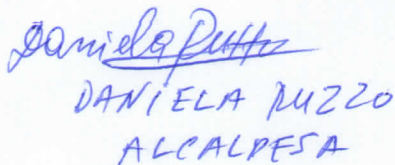 Daniela
DANIELA RUZZO
ALCALDESA